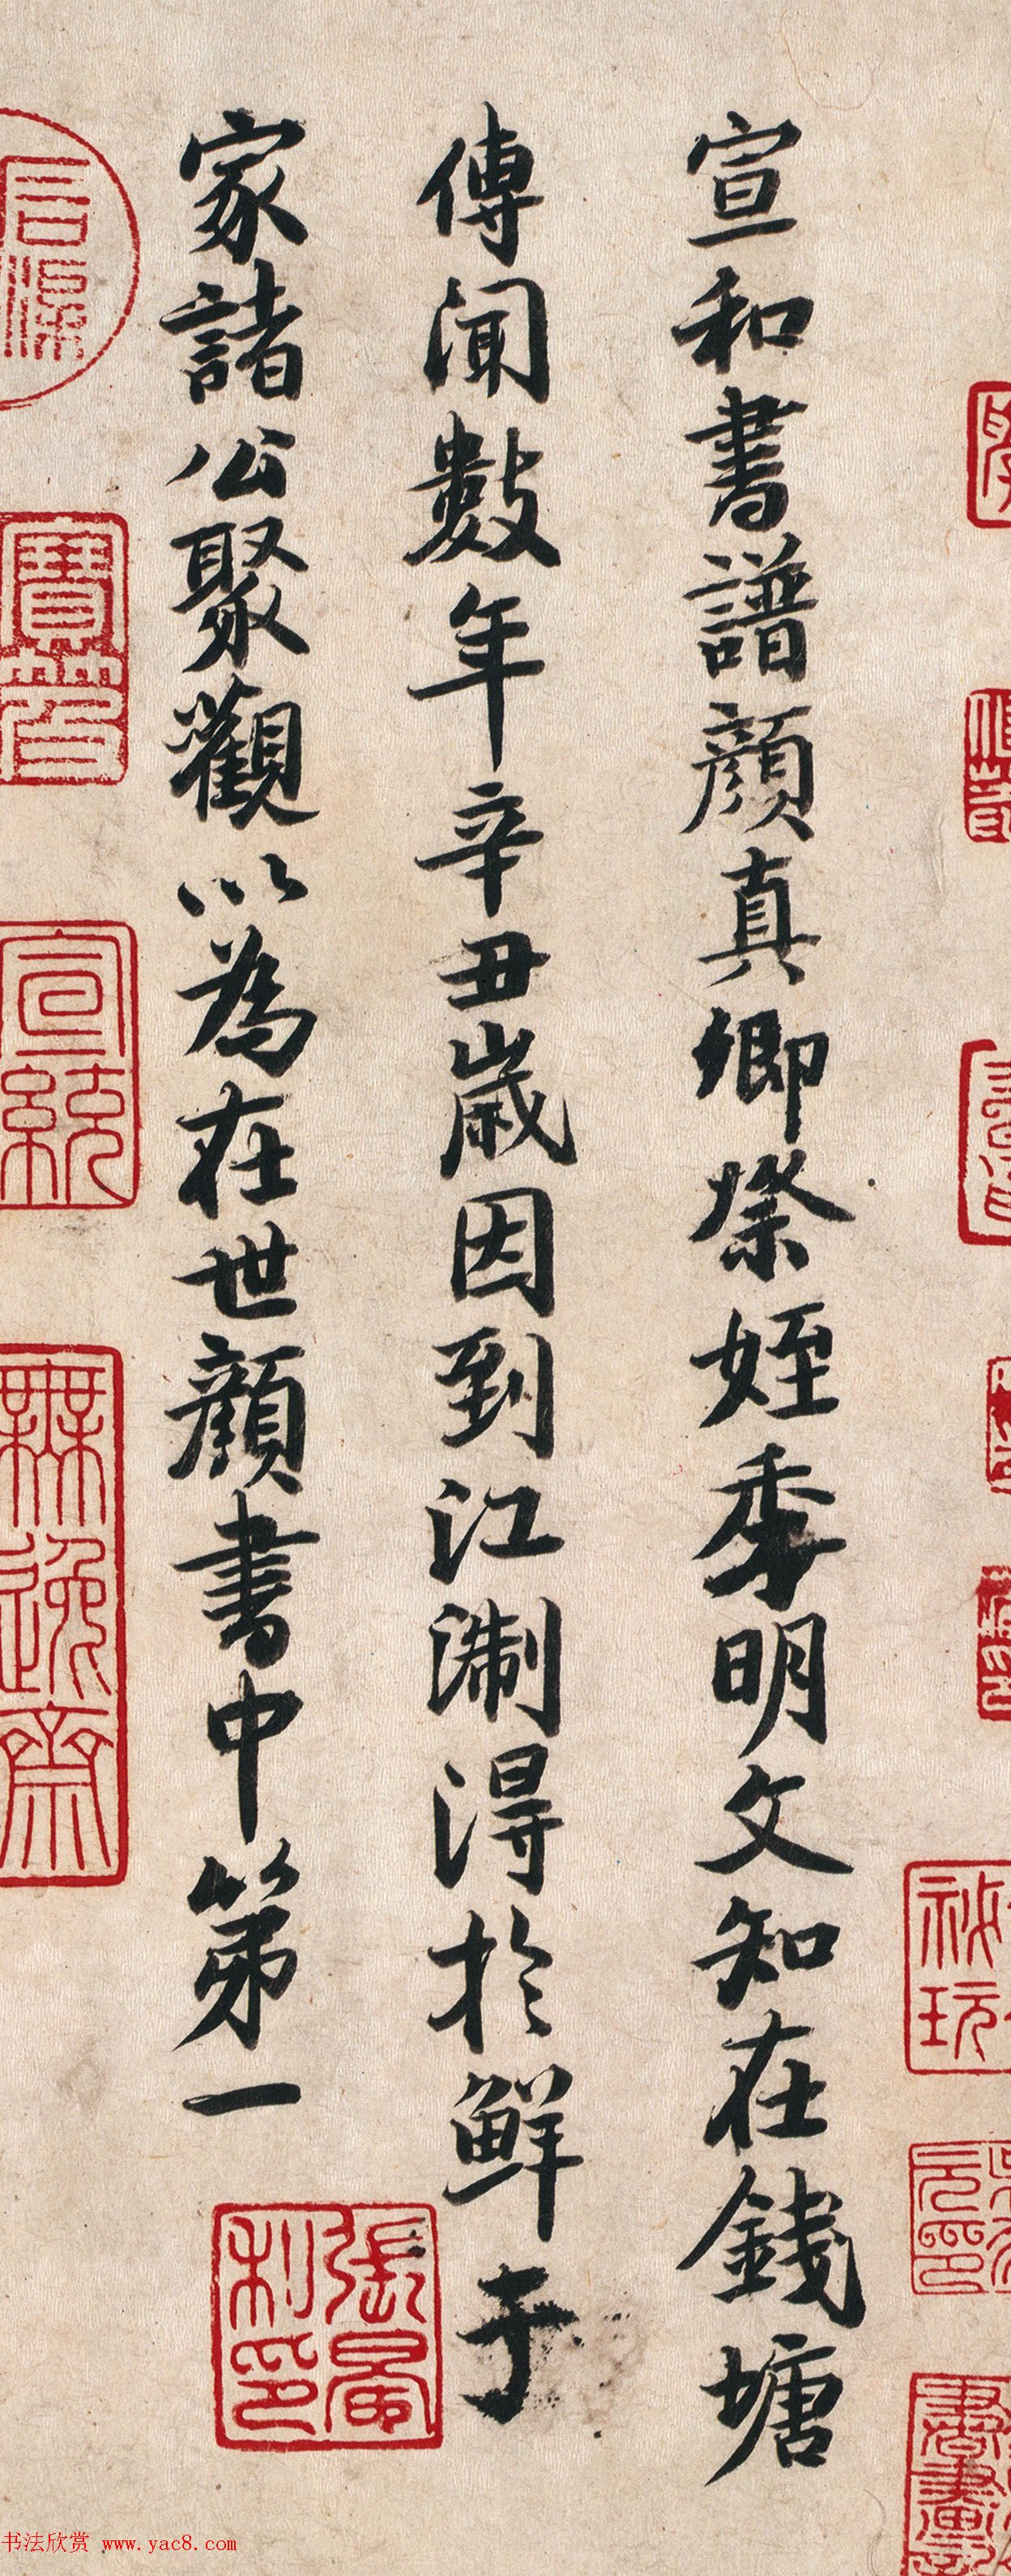 宣和書譜顔真卿祭姪季明文知在錢塘
傳聞數年辛丑歲因到江淛得於鮮于
家諸公聚觀以為在世顔書中第一
張晏私印
宣統
無逸齋
秘玩
書畫
书法欣赏 www.yac8.com